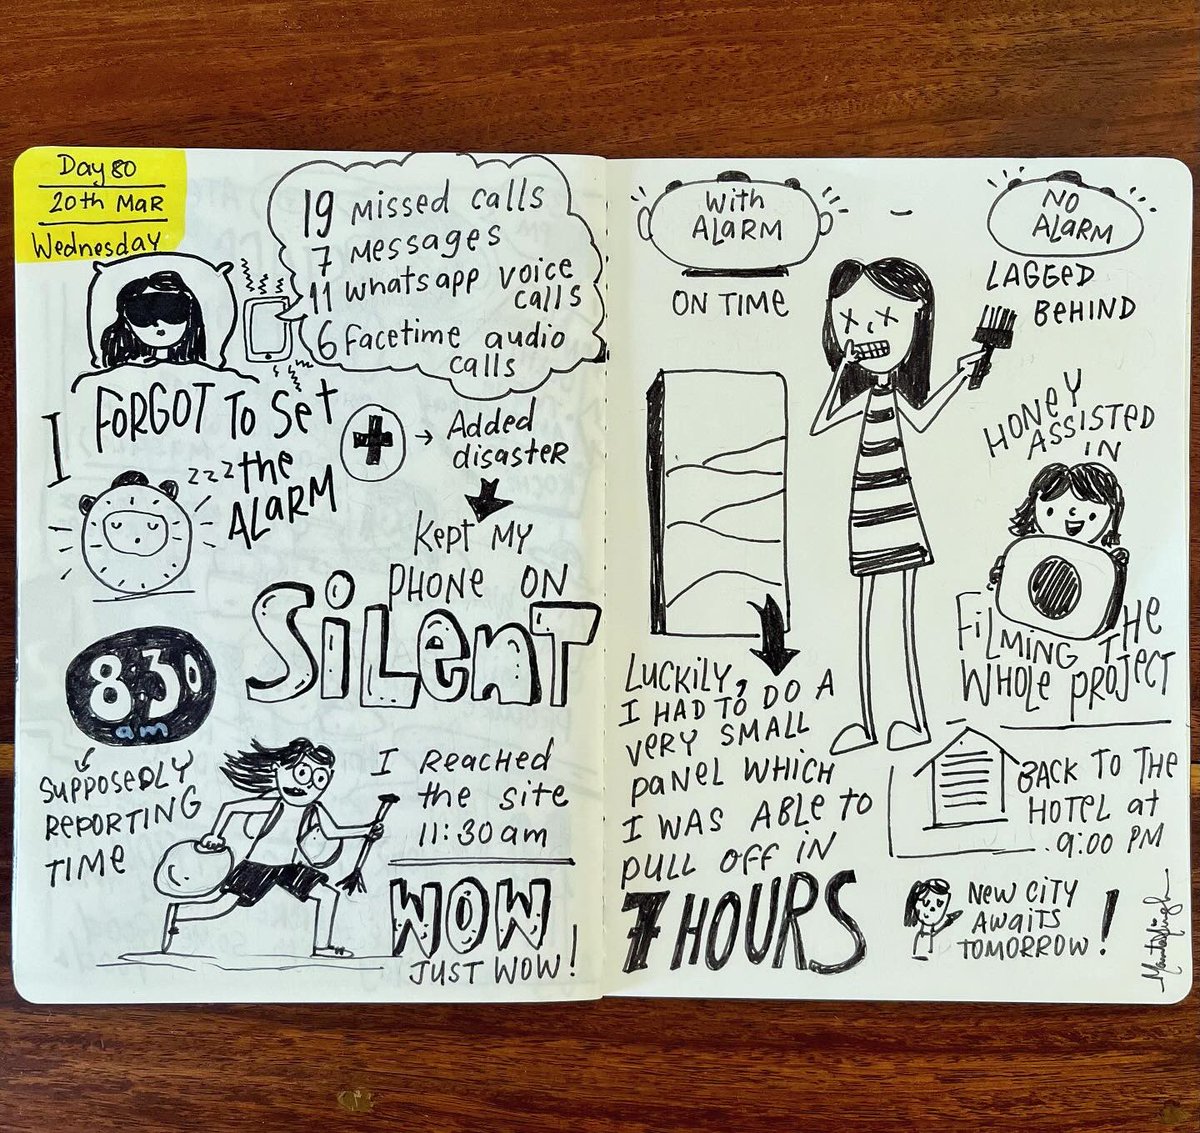 Day 80
20th MAR
Wednesday
19 Missed calls
7 Messages
11 whatsapp voice
calls
6 Facetime audio
calls
I FORGOT TO Set
zzz the
ALARM
→ Added
disaster
Kept MY
PHONE ON
SiLenT
8:30
am
SUPPOSEDLY
REPORTING
TIME
I Reached
the site
11:30 am
WOW
JUST WOW!
With
ALARM
ON TIME
NO
ALARM
LAGGED
BEHIND
HONEY
ASSISTED
IN
FiLMING THE
WHOLE PROJECT
LUCKILY,
I HAD TO DO A
VERY SMALL
PANEL WHICH
I WAS ABLE TO
PULL OFF IN
7 HOURS
BACK TO THE
HOTEL at
9:00 PM
NEW CITY
AWAITS
TOMORROW!